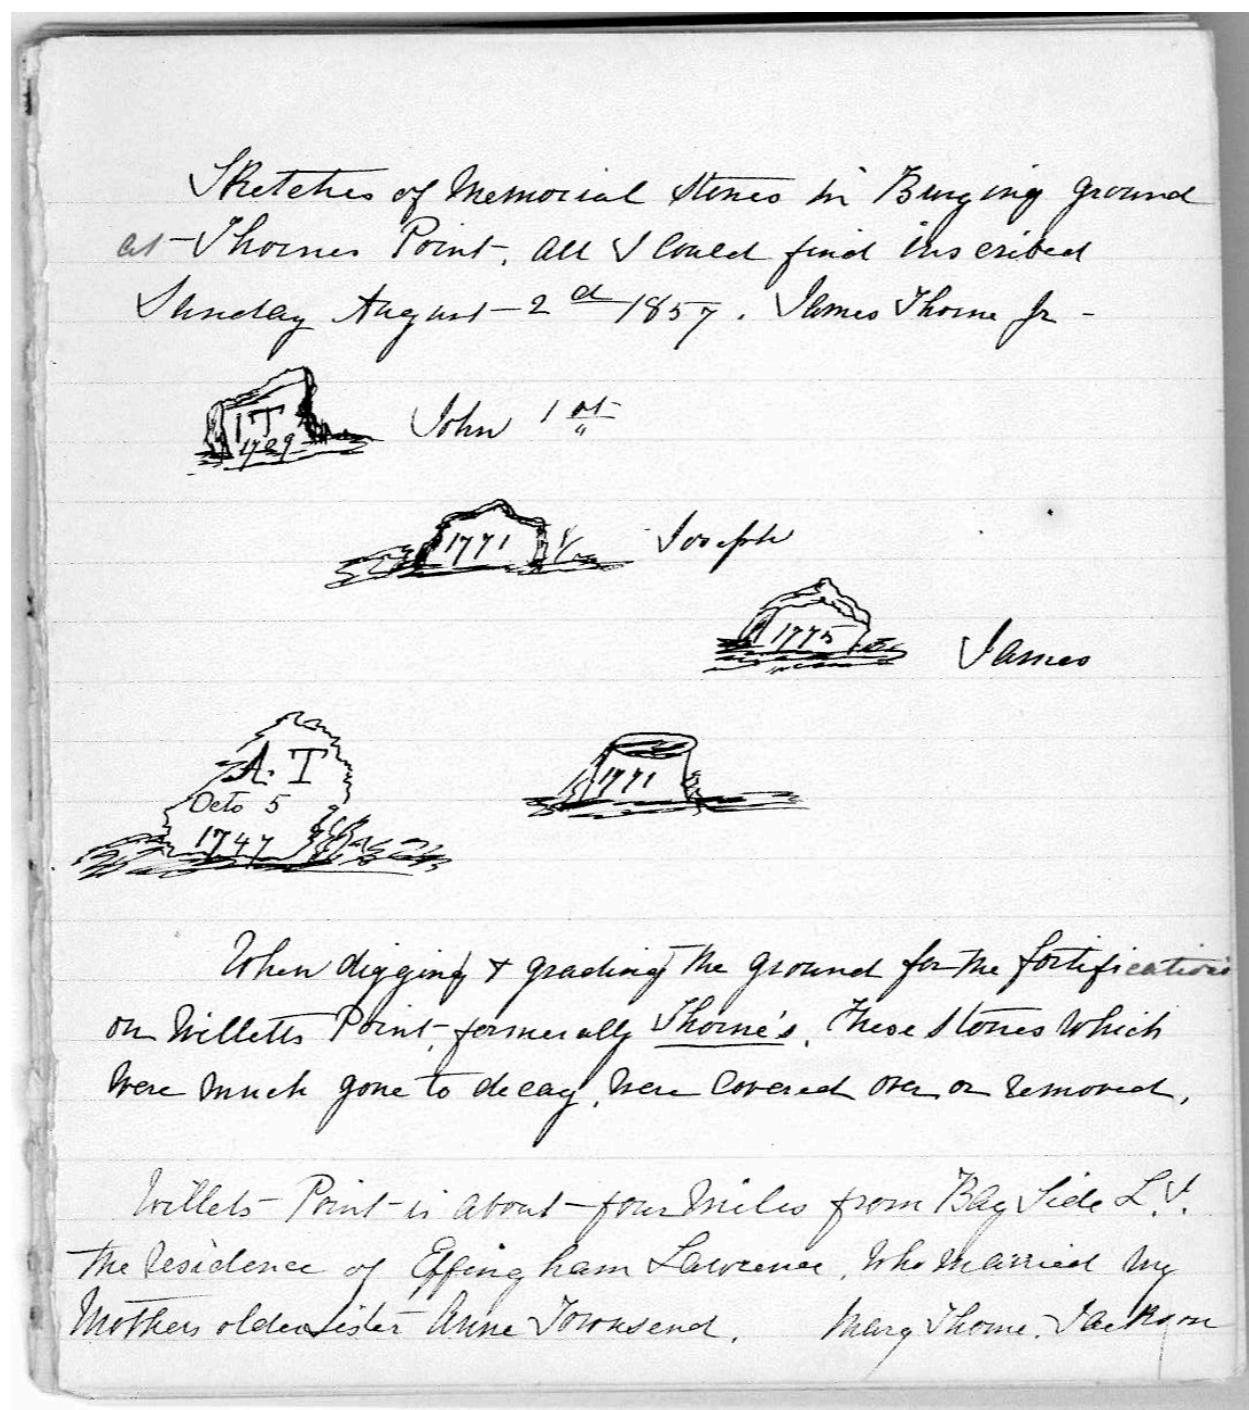 Sketches of Memorial Stones in Burying ground
at Thornes Point, all I could find inscribed
Sunday August 2d 1857. James Thorne Jr -
IT
1729
John 1st
1771
Joseph
1775
James
A. T
Octo 5
1747
1771
When digging & grading the ground for the fortifications
on Willetts Point, formerally Thorne's, These stones which
were much gone to decay, were covered over or removed.
Willets Point is about four miles from Bay Side L.I.
the residence of Effingham Lawrence, who married my
Mothers older sister Anne Townsend. Mary Thorne. Jackson